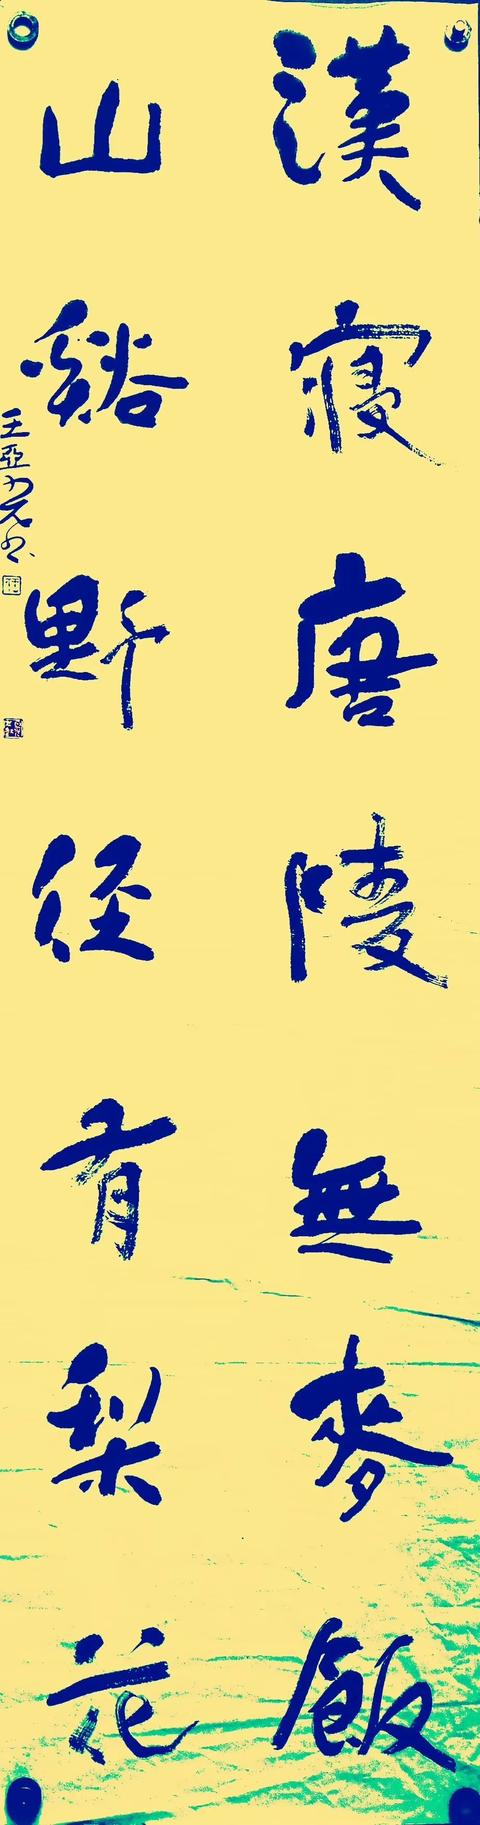 漢寢唐陵無麥飯
山谿野徑有梨花